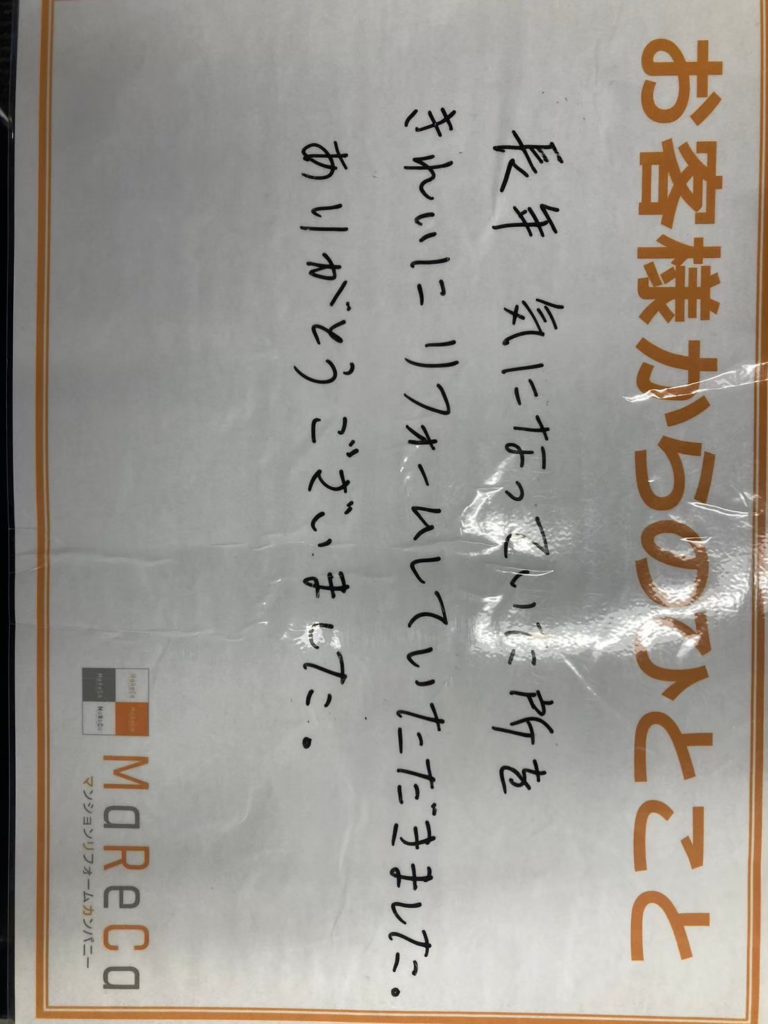 お客様からのひとこと
長年 気になっていた所を
きれいにリフォームしていただきました。
ありがとうございました。
MaReCa
マンションリフォームカンパニー